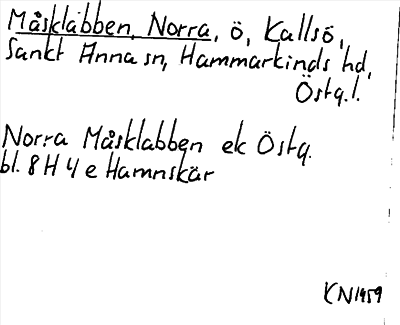 Måsklabben, Norra, ö, Kallsö,
Sankt Anna sn, Hammarkinds hd,
Östg.l.
Norra Måsklabben ek Östg.
bl. 8 H 4 e Hamnskär
KN 1959